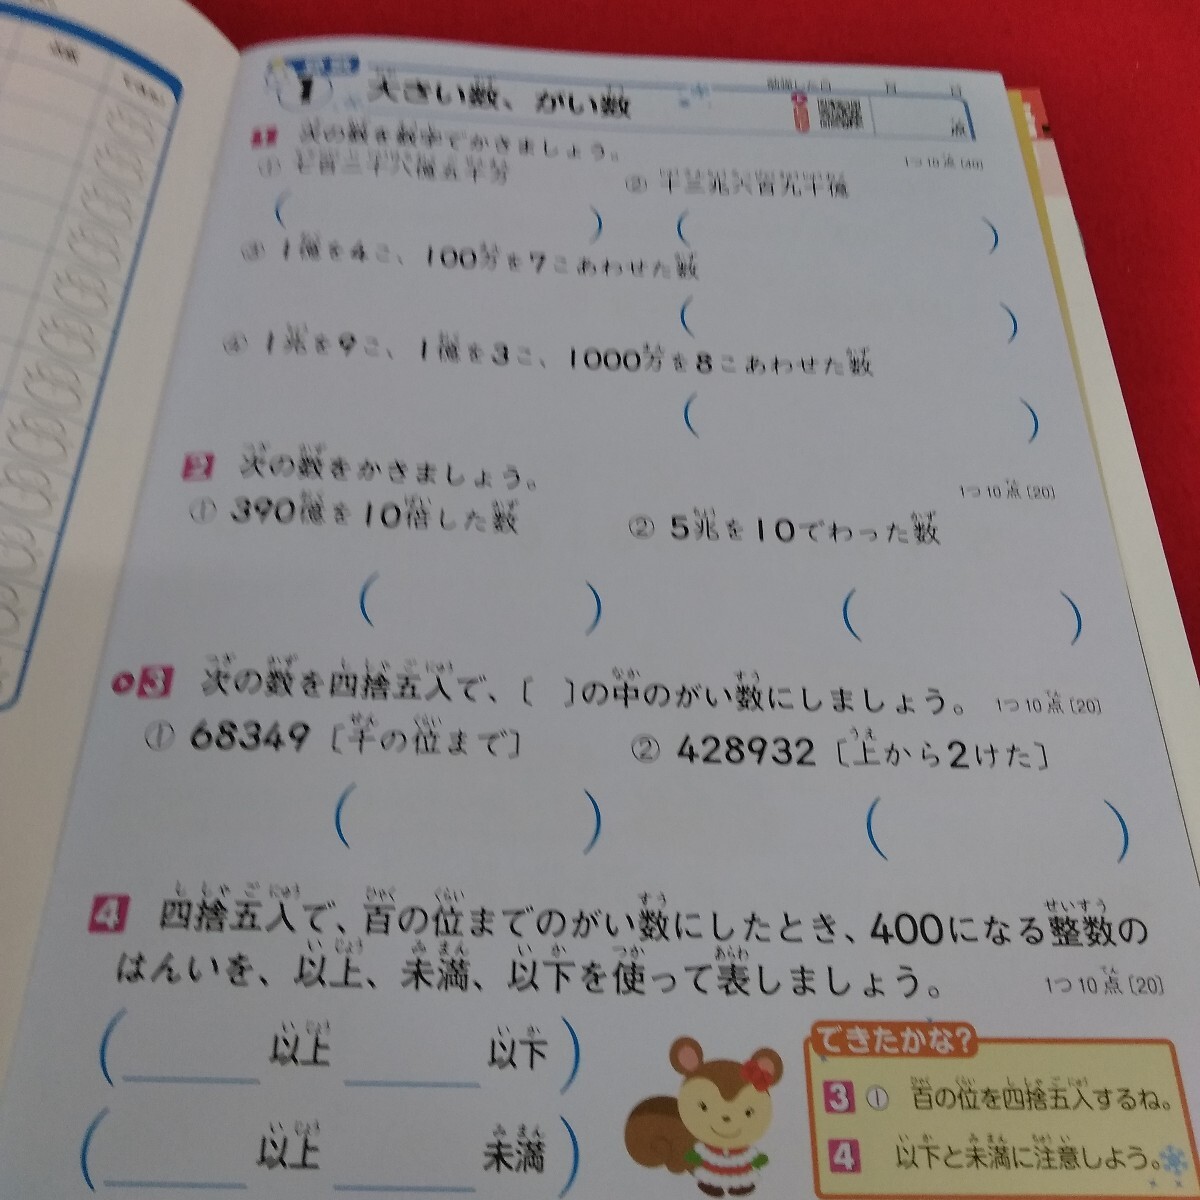 算数
1 大きい数、がい数
勉強した日 月 日
点
1 次の数を数字でかきましょう。
1つ10点〔40〕
② 十三兆六百九十億
③ 1億を4こ、100万を7こあわせた数
④ 1兆を9こ、1億を3こ、1000万を8こあわせた数
2 次の数をかきましょう。
1つ10点〔20〕
① 390億を10倍した数
② 5兆を10でわった数
3 次の数を四捨五入で、〔 〕の中のがい数にしましょう。 1つ10点〔20〕
① 68349〔千の位まで〕
② 428932〔上から2けた〕
4 四捨五入で、百の位までのがい数にしたとき、400になる整数の
はんいを、以上、未満、以下を使って表しましょう。 1つ10点〔20〕
( 以上 以下 )
( 以上 未満 )
できたかな?
3 ① 百の位を四捨五入するね。
4 以下と未満に注意しよう。